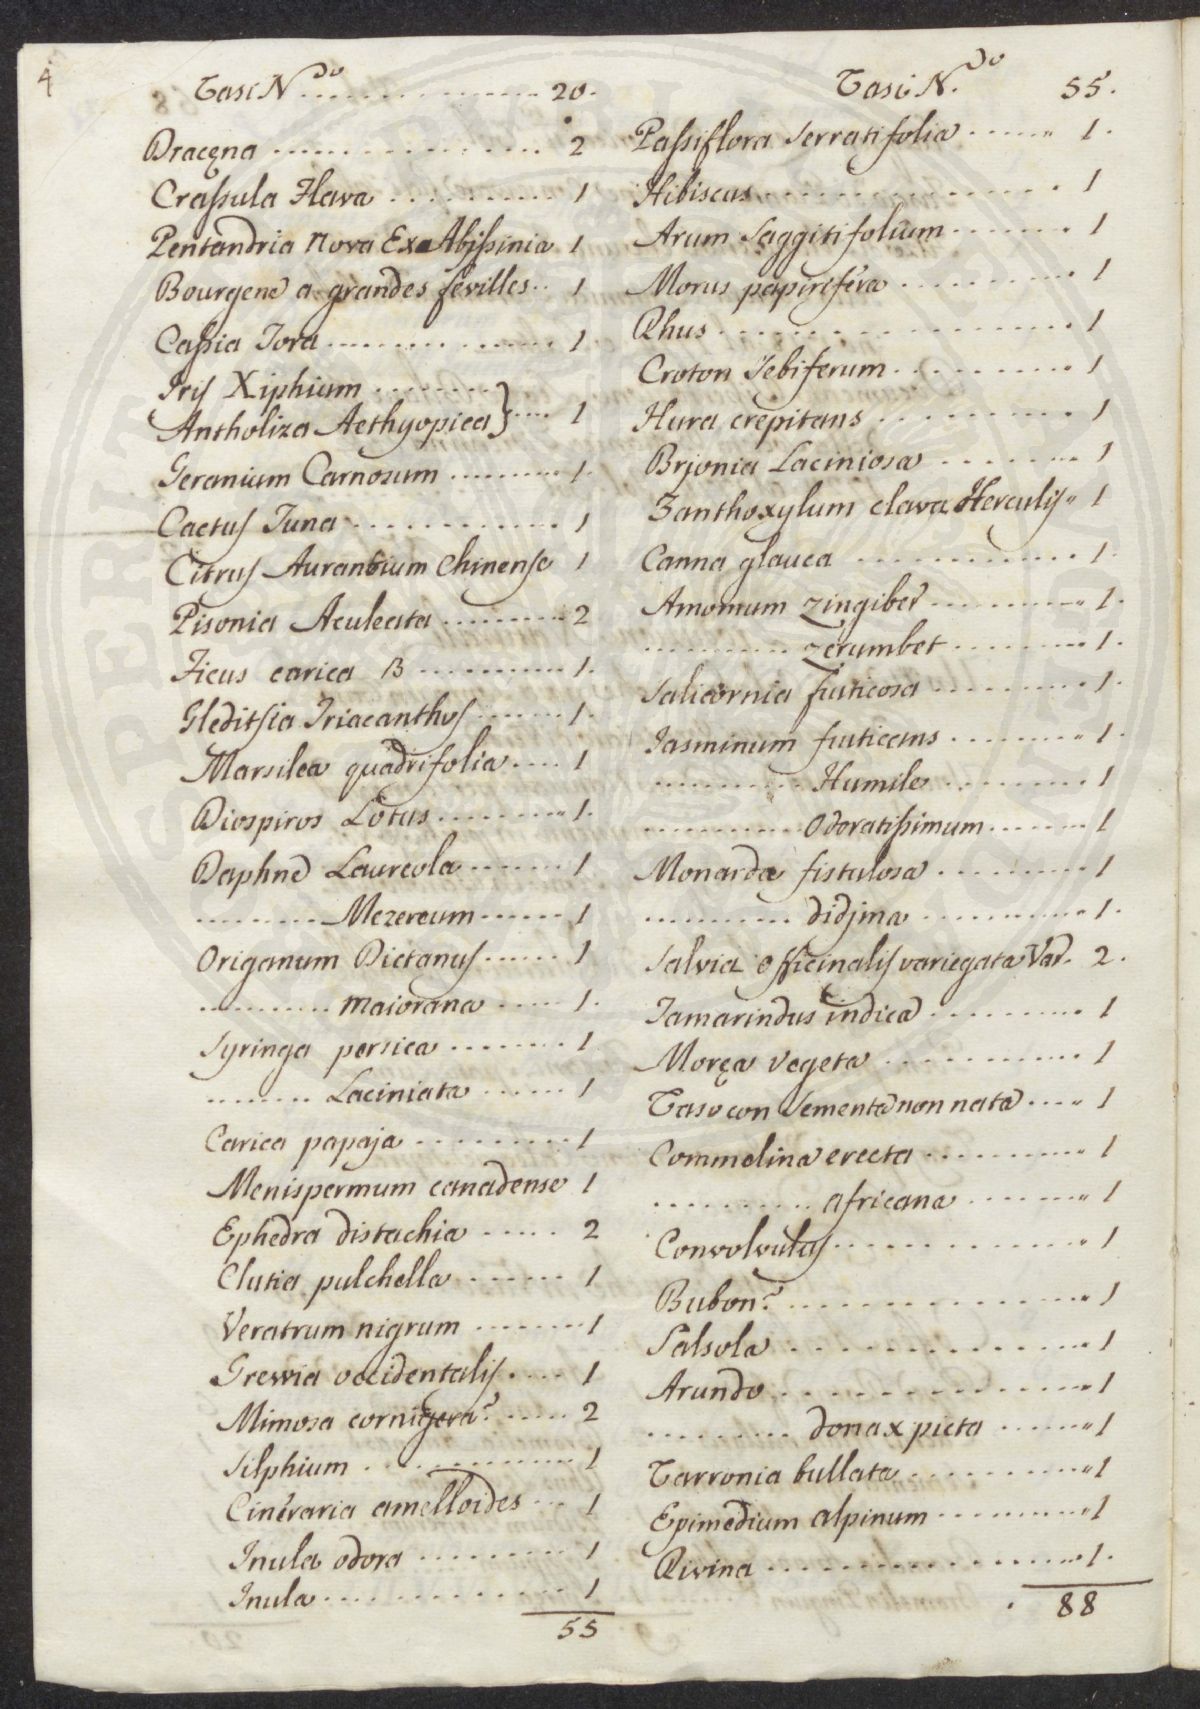 4
Vasi N.do 20.
Dracęna 2
Craſsula Flava 1
Pentandria nova Ex Abiſsinia 1
Bourgene a grandes fevilles 1
Caſsia Tora 1
Iris Xiphium
Antholiza Aethyopica} 1
Geranium Carnosum 1
Cactus Tuna 1
Citrus Aurantium Chinense 1
Pisonia Aculeata 2
Ficus carica B 1
Gleditsia Triacanthus 1
Marsilea quadrifolia 1
Diospiros Lotus 1
Daphne Laureola 1
......... Mezereum 1
Origanum Dictanus 1
......... maiorana 1
Syringa persica 1
......... Laciniata 1
Carica papaja 1
Menispermum canadense 1
Ephedra distachia 2
Clutia pulchella 1
Veratrum nigrum 1
Grewia occidentalis 1
Mimosa cornigera? 2
Silphium 1
Cineraria amelloides 1
Inula odora 1
Inula 1
55
Vasi N.do 55.
Paſsiflora serratifolia 1.
Hibiscus 1
Arum Saggitifolium 1
Morus papirifera 1
Rhus 1
Croton Sebiferum 1
Hura crepitans 1
Brjonia Laciniosa 1
Zanthoxylum clava Herculis 1
Canna glauca 1
Amomum zingiber 1.
......... zerumbet 1.
Salicornia fruticosa 1.
Jasminum fruticans 1.
......... Humile 1
......... odoratiſsimum 1
Monarda fistulosa 1
......... didjma 1.
Salvia officinalis variegata Var. 2.
Tamarindus indica 1
Moręa vegeta 1
Vaso con Sementa non nata 1
Commelina erecta 1
......... africana 1
Convolvulus 1
Bubon? 1
Salsola 1
Arundo 1
......... donax picta 1
Tarronia bullata 1
Epimedium alpinum 1
Rivina 1.
88